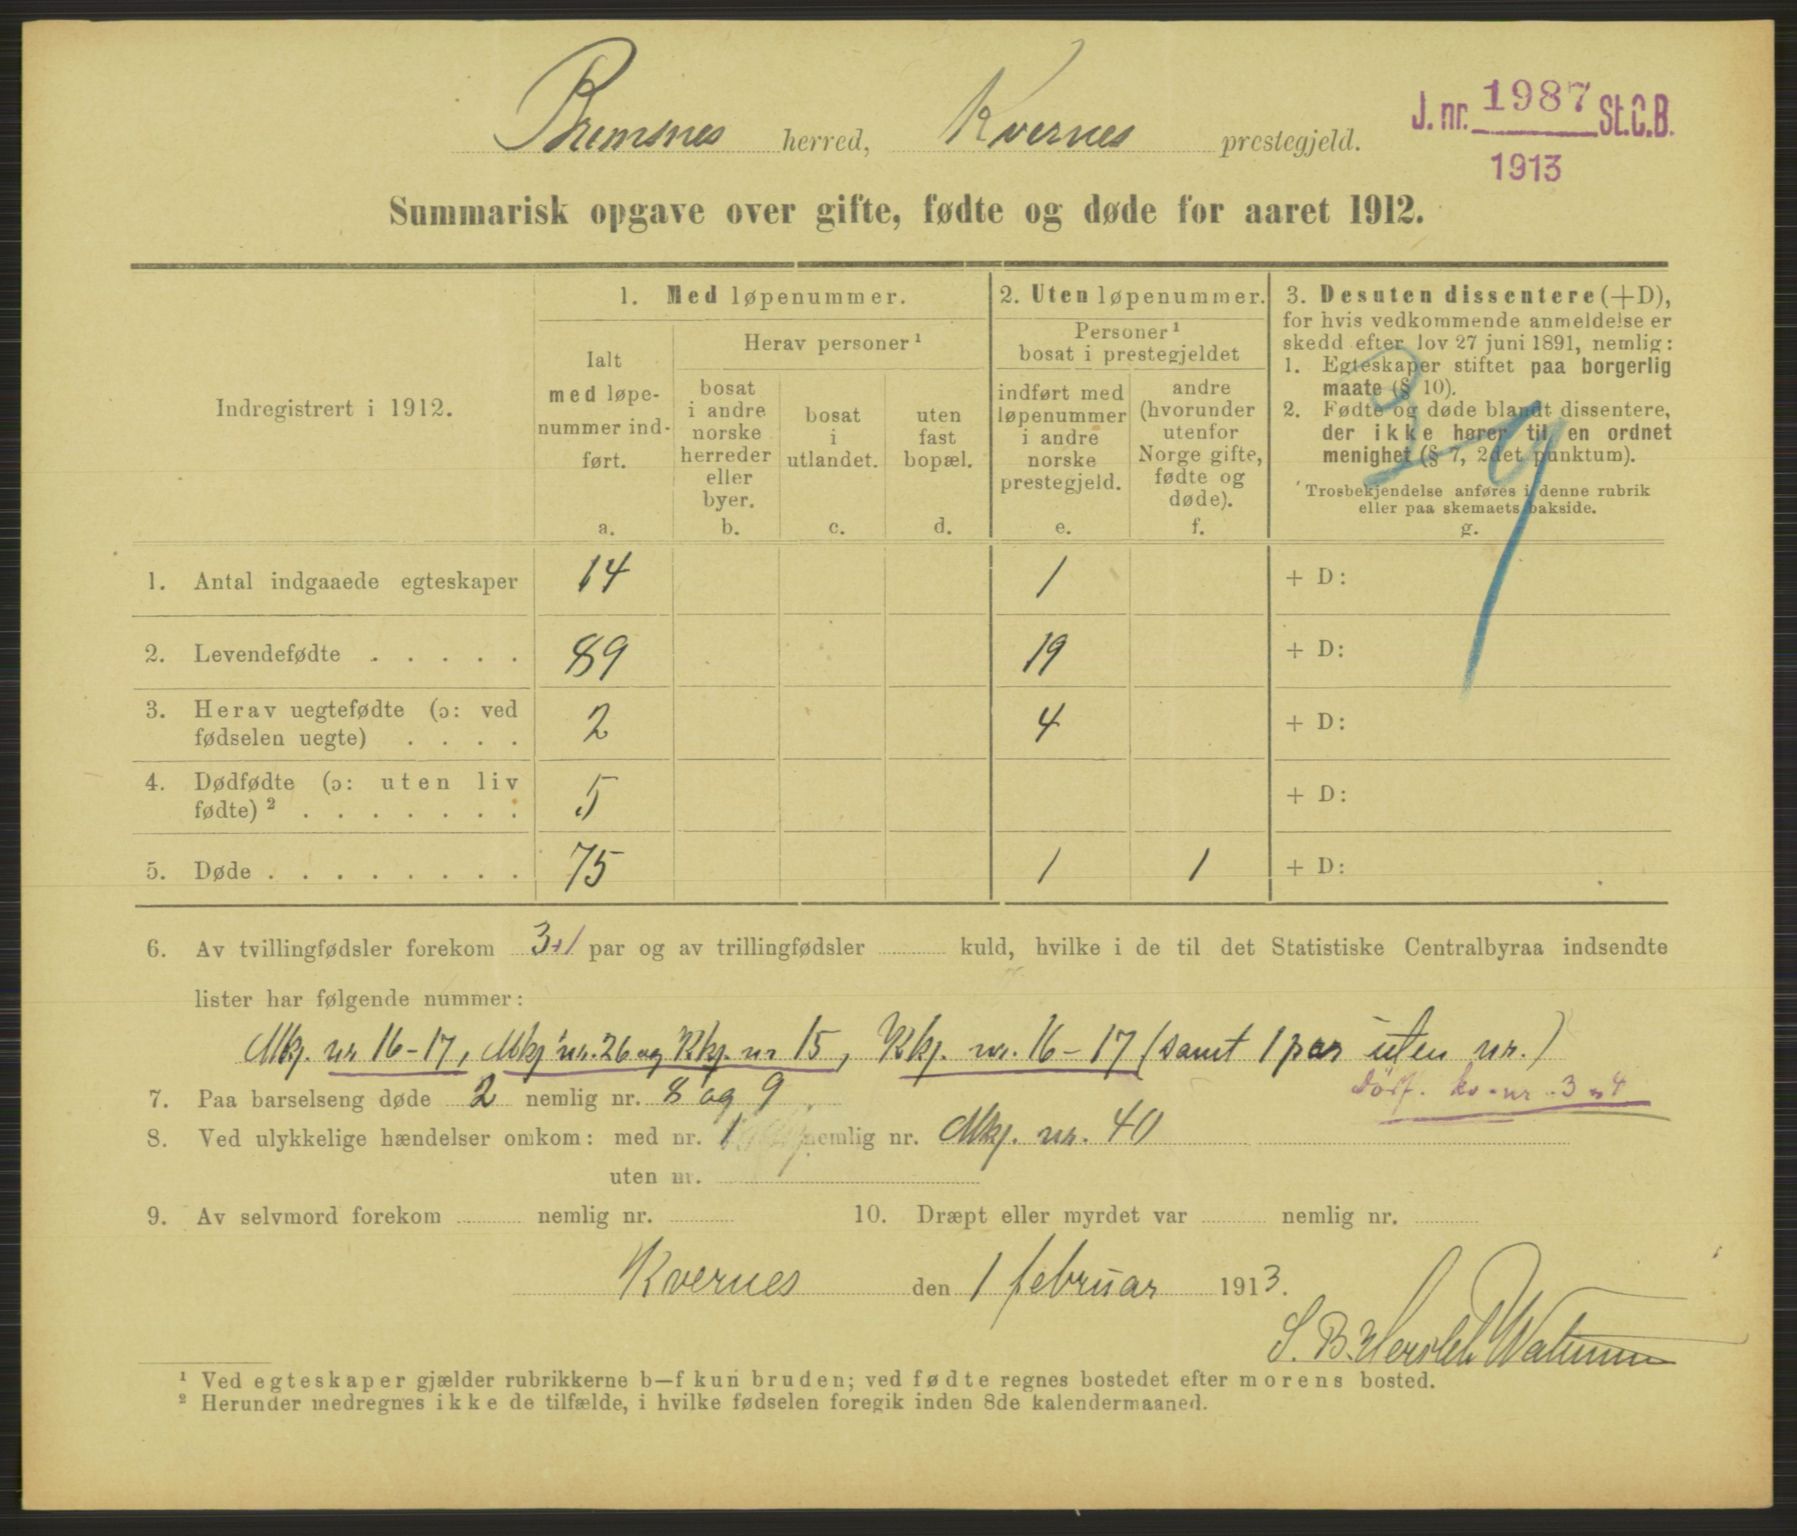 Bremsnes herred, Kvernes prestegjeld.
J. nr. 1987 St.C.B.
1913
Summarisk opgave over gifte, fødte og døde for aaret 1912.
Indregistrert i 1912.
1. Med løpenummer.
Ialt
med løpe-
nummer ind-
ført.
a.
Herav personer ¹
bosat
i andre
norske
herreder
eller
byer.
b.
bosat
i
utlandet.
c.
uten
fast
bopæl.
d.
2. Uten løpenummer.
Personer ¹
bosat i prestegjeldet
indført med
løpenummer
i andre
norske
prestegjeld.
e.
andre
(hvorunder
utenfor
Norge gifte,
fødte og
døde).
f.
3. Desuten dissentere (+D),
for hvis vedkommende anmeldelse er
skedd efter lov 27 juni 1891, nemlig:
1. Egteskaper stiftet paa borgerlig
maate (§ 10).
2. Fødte og døde blandt dissentere,
der ikke hører til en ordnet
menighet (§ 7, 2det punktum).
Trosbekjendelse anføres i denne rubrik
eller paa skemaets bakside.
g.
1. Antal indgaaede egteskaper 14 1 + D:
2. Levendefødte . . . . . 89 19 + D:
3. Herav uegtefødte (ɔ: ved
fødselen uegte) . . . . 2 4 + D:
4. Dødfødte (ɔ: uten liv
fødte) ² . . . . . . . 5 + D:
5. Døde . . . . . . . . 75 1 1 + D:
6. Av tvillingfødsler forekom 3+1 par og av trillingfødsler kuld, hvilke i de til det Statistiske Centralbyraa indsendte
lister har følgende nummer:
Mkj. nr 16-17, Mkj nr. 26 og Kkj. nr 15, Kkj. nr. 16-17 (samt 1 par uten nr.)
7. Paa barselseng døde 2 nemlig nr. 8 og 9
8. Ved ulykkelige hændelser omkom: med nr. 1 nemlig nr. Mkj. nr. 40
uten nr.
9. Av selvmord forekom nemlig nr. 10. Dræpt eller myrdet var nemlig nr.
Kvernes den 1 februar 1913.
S. B. Hersleb
¹ Ved egteskaper gjælder rubrikkerne b—f kun bruden; ved fødte regnes bostedet efter morens bosted.
² Herunder medregnes ikke de tilfælde, i hvilke fødselen foregik inden 8de kalendermaaned.